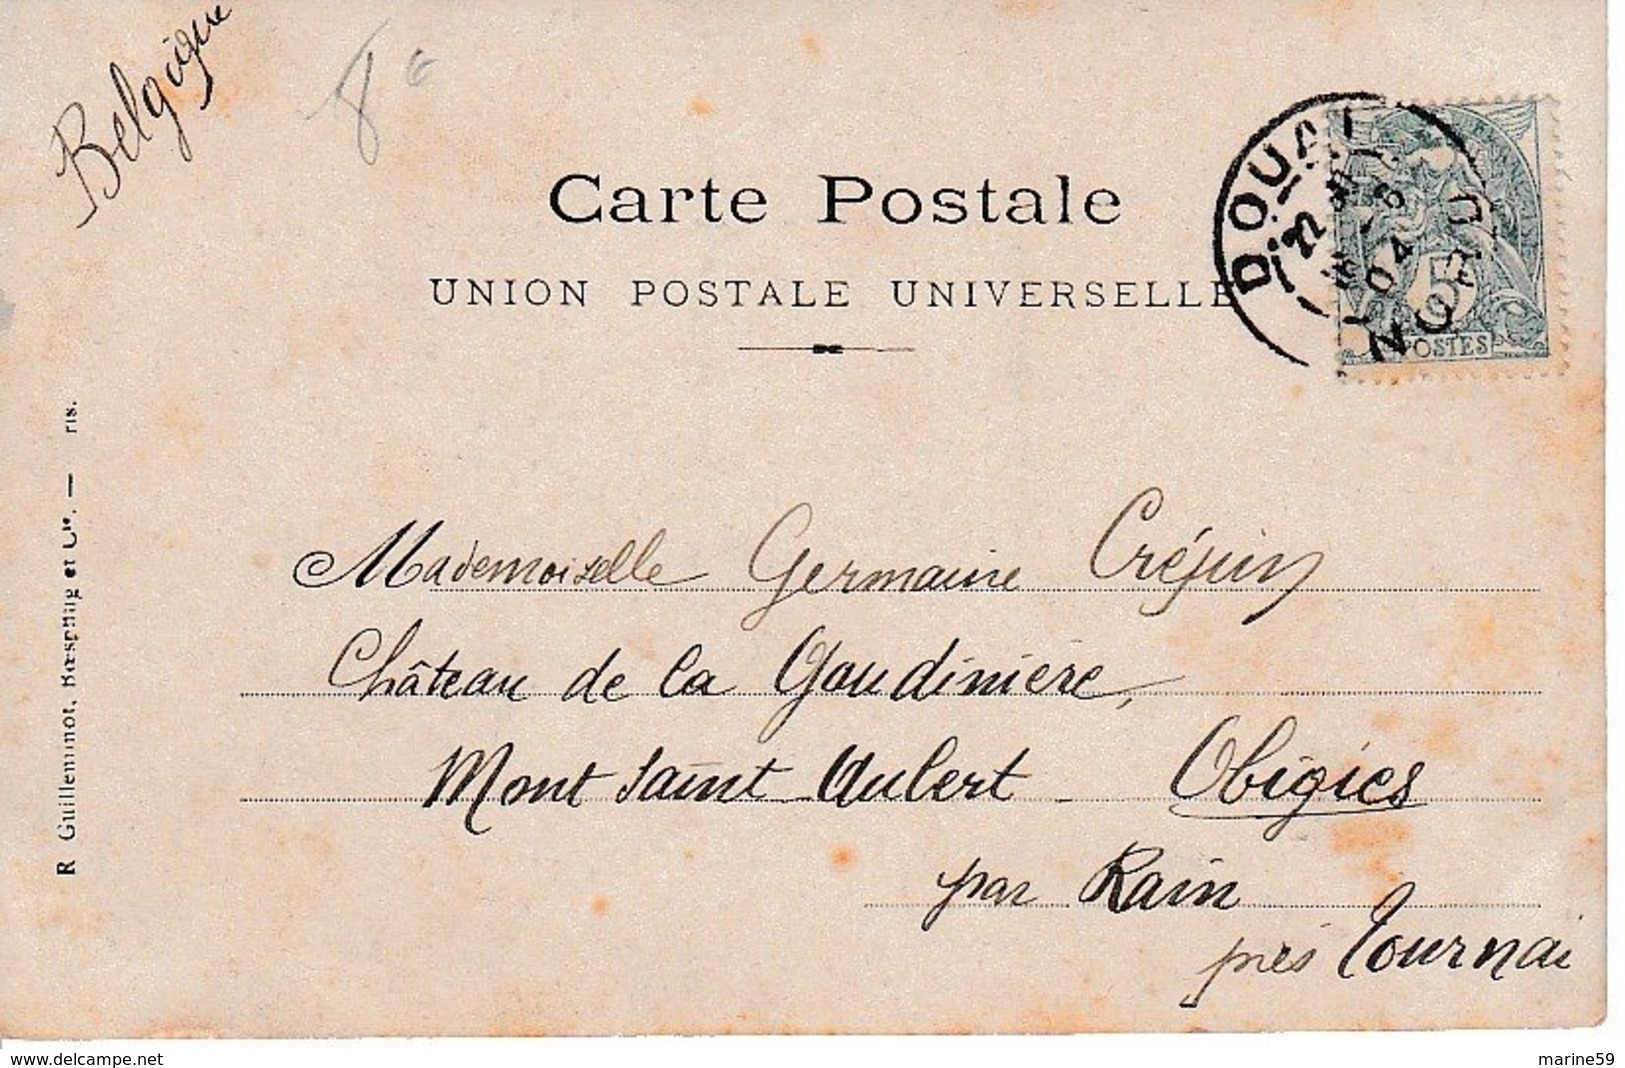 Belgique
8 €
Carte Postale
UNION POSTALE UNIVERSELLE
DOUAI
NORD
22
6
04
5
POSTES
R Guilleminot, Bœspflug et Cie. — ris.
Mademoiselle Germaine Crépin
Château de la Gaudinière,
Mont Saint Aubert - Obigies
par Kain
près Tournai
www.delcampe.net
marine59